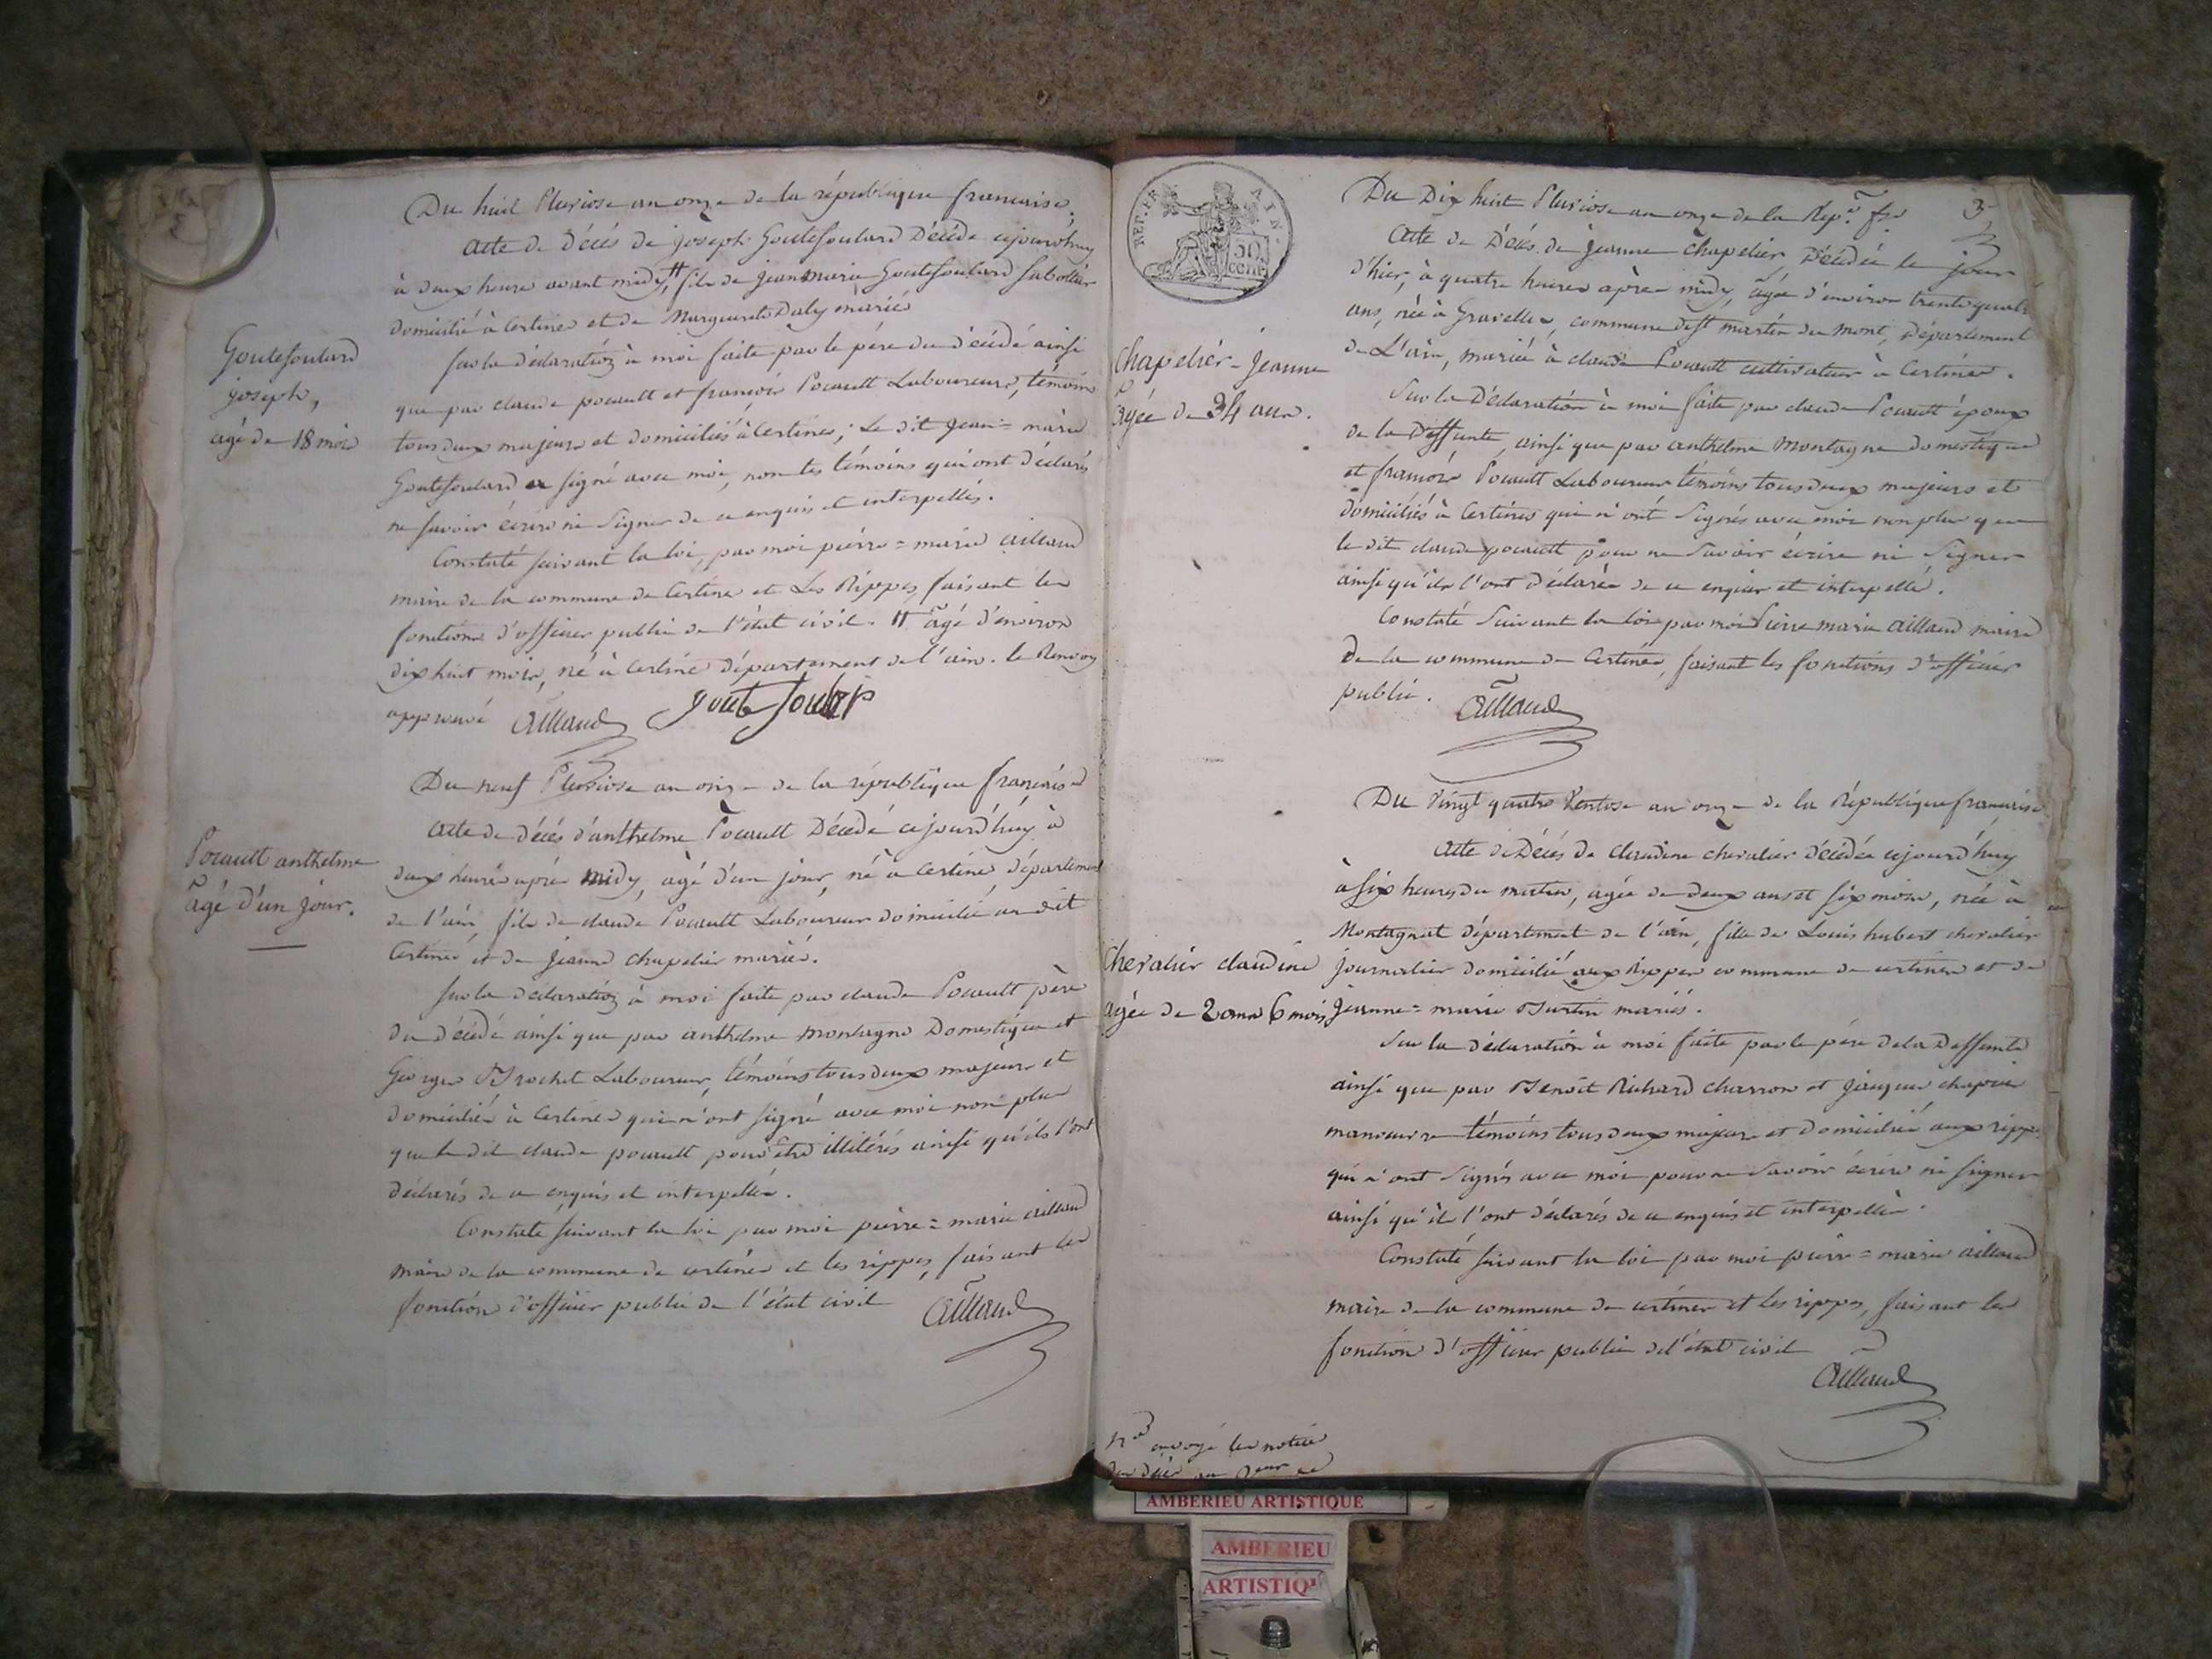 Du huit Pluviose an onze de la république francaise.
Acte de Décés de joseph Goutefoulard Décédé cejourd'huy
à deux heures avant midy, # fils de jean marie Goutefoulard Sabotier
domicilié à Certines et de Marguerite Daly mariés
Goutefoulard
joseph,
agé de 18 mois
sur la déclaration à moi faite par le père du décédé ainsi
que par claude pocault et françois Pocault Laboureurs, témoins
tous deux majeurs et domiciliés à Certines; Le dit Jean = marie
Goutefoulard a signé avec moi, non les témoins qui ont déclarés
ne savoir écrire ni signer de ce enquis et interpellés.
Constaté suivant la loi, par moi pierre = marie aillaud
maire de la commune de Certines et Les Rippes faisant les
fonctions d'officier public de l'état civil. # âgé d'environ
dix huit mois, né à Certines département de l'ain. le Renvoy
approuvé Aillaud goutefoular
Du neuf Pluviose an onze de la république françaisé
Acte de décés d'anthelme Pocault Décédé cejourd'huy à
Pocault anthelme
âgé d'un jour.
deux heures après midy, agé d'un jour, né à Certines, département
de l'ain, fils de claude Pocault Laboureur domicilié au dit
Certines et de jeanne chapelier mariés.
sur la déclaration à moi faite par claude Pocault père
du décédé ainsi que par anthelme montagne Domestique et
Georges Brochet Laboureur, témoins tous deux majeurs et
domiciliés à Certines qui n'ont signé avec moi non plus
que le dit claude pocault pour être illitérés ainsi qu'ils l'ont
déclarés de ce enquis et interpellés.
Constaté suivant la loi par moi pierre = marie aillaud
maire de la commune de certines et les rippes, faisant les
fonction d'officier public de l'état civil Aillaud
REP. FRA AIN.
50
cent.
3
Du Dix huit Pluviose an onze de la Rep.e fse
Acte de Décés de jeanne chapelier Décédée le jour
d'hier, à quatre heures après midy, âgée d'environ trente quatre
ans, née à Gravelles, commune de St martin du mont, Département
Chapeliér - Jeanne
âgée de 34 ans.
de L'ain, mariée à claude Pocault cultivateur à Certines.
Sur la Déclaration à moi faite par claude Pocault époux
de la Deffunte, ainsi que par anthelme Montagne Domestique
et françois Pocault Laboureur témoins tous deux majeurs et
domiciliés à Certines qui n'ont signés avec moi non plus que
le dit claude pocault pour ne savoir écrire ni signer
ainsi qu'ils l'ont déclarés de ce enquis et interpellé.
Constaté suivant la loi par moi Pierre marie Aillaud maire
de la commune de Certines, faisant les fonctions d'officier
public. Aillaud
Du Vingt quatre Ventose an onze de la République française
Acte de Décés de claudine chevalier décédée cejourd'huy
à six heures du matin, agée de deux ans et six mois, née à
Montagnat département de l'ain, fille de Louis hubert chevalier
Chevalier claudine
journalier domicilié aux Rippes commune de certines et de
agée de 2 ans 6 mois
jeanne = marie Burtin mariés.
Sur la déclaration à moi faite par le père de la Deffunte
ainsi que par Benoit Richard charron et jacques chapuis
manoeuvre témoins tous deux majeurs et domiciliés aux rippes
qui n'ont signés avec moi pour ne savoir écrire ni signer
ainsi qu'ils l'ont déclarés de ce enquis et interpellés.
Constaté suivant la loi par moi pierre = marie aillaud
maire de la commune de certines et les rippes, faisant les
fonction d'officier public de l'état civil
Aillaud
envoyé les notices
AMBERIEU ARTISTIQUE
AMBERIEU
ARTISTIQU